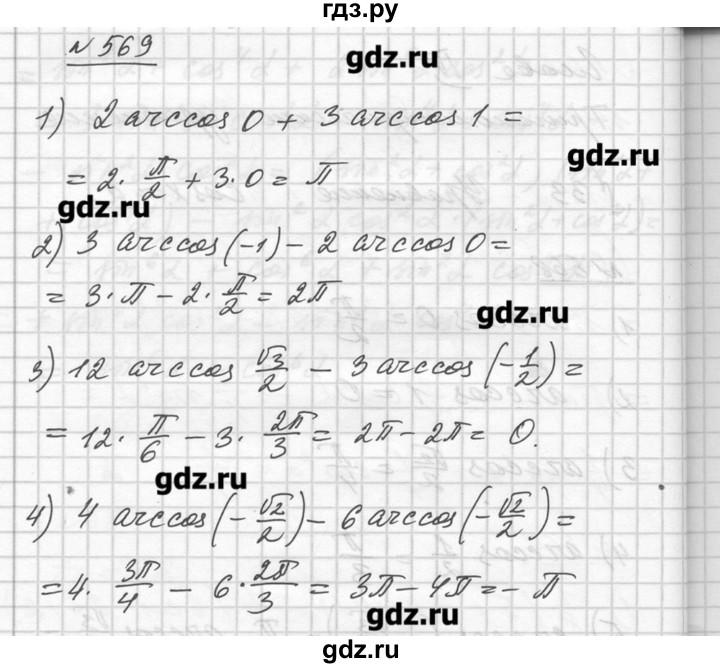 гдз.ру
N 569
gdz.ru
1) 2 arccos 0 + 3 arccos 1 =
gdz.ru
= 2 · π/2 + 3 · 0 = π
gdz.ru
2) 3 arccos (-1) - 2 arccos 0 =
= 3 · π - 2 · π/2 = 2π
gdz.ru
3) 12 arccos √3/2 - 3 arccos (-1/2) =
= 12 · π/6 - 3 · 2π/3 = 2π - 2π = 0.
gdz.ru
4) 4 arccos (-√2/2) - 6 arccos (-√2/2) =
= 4 · 3π/4 - 6 · 2π/3 = 3π - 4π = - π
gdz.ru
gdz.ru